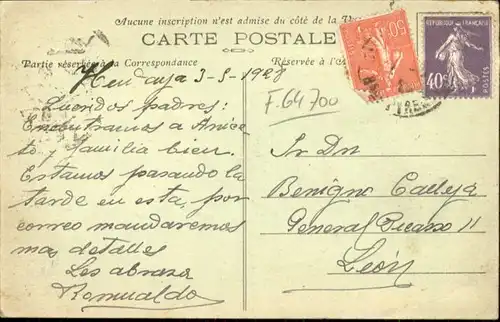 Aucune inscription n'est admise du côté de la
CARTE POSTALE
Partie réservée à la Correspondance
Réservée à l'A
50
RÉPUBLIQUE FRANÇAISE
40c
POSTES
Hendaya 3-5-1928
F.64700
Queridos padres:
Encontramos a Anice
to y familia bien.
Estamos pasando la
tarde en esta, por
correo mandaremos
mas detalles
Les abraza
Romualdo
Sr Dn
Benigno Calleja
General Picasso 11
León